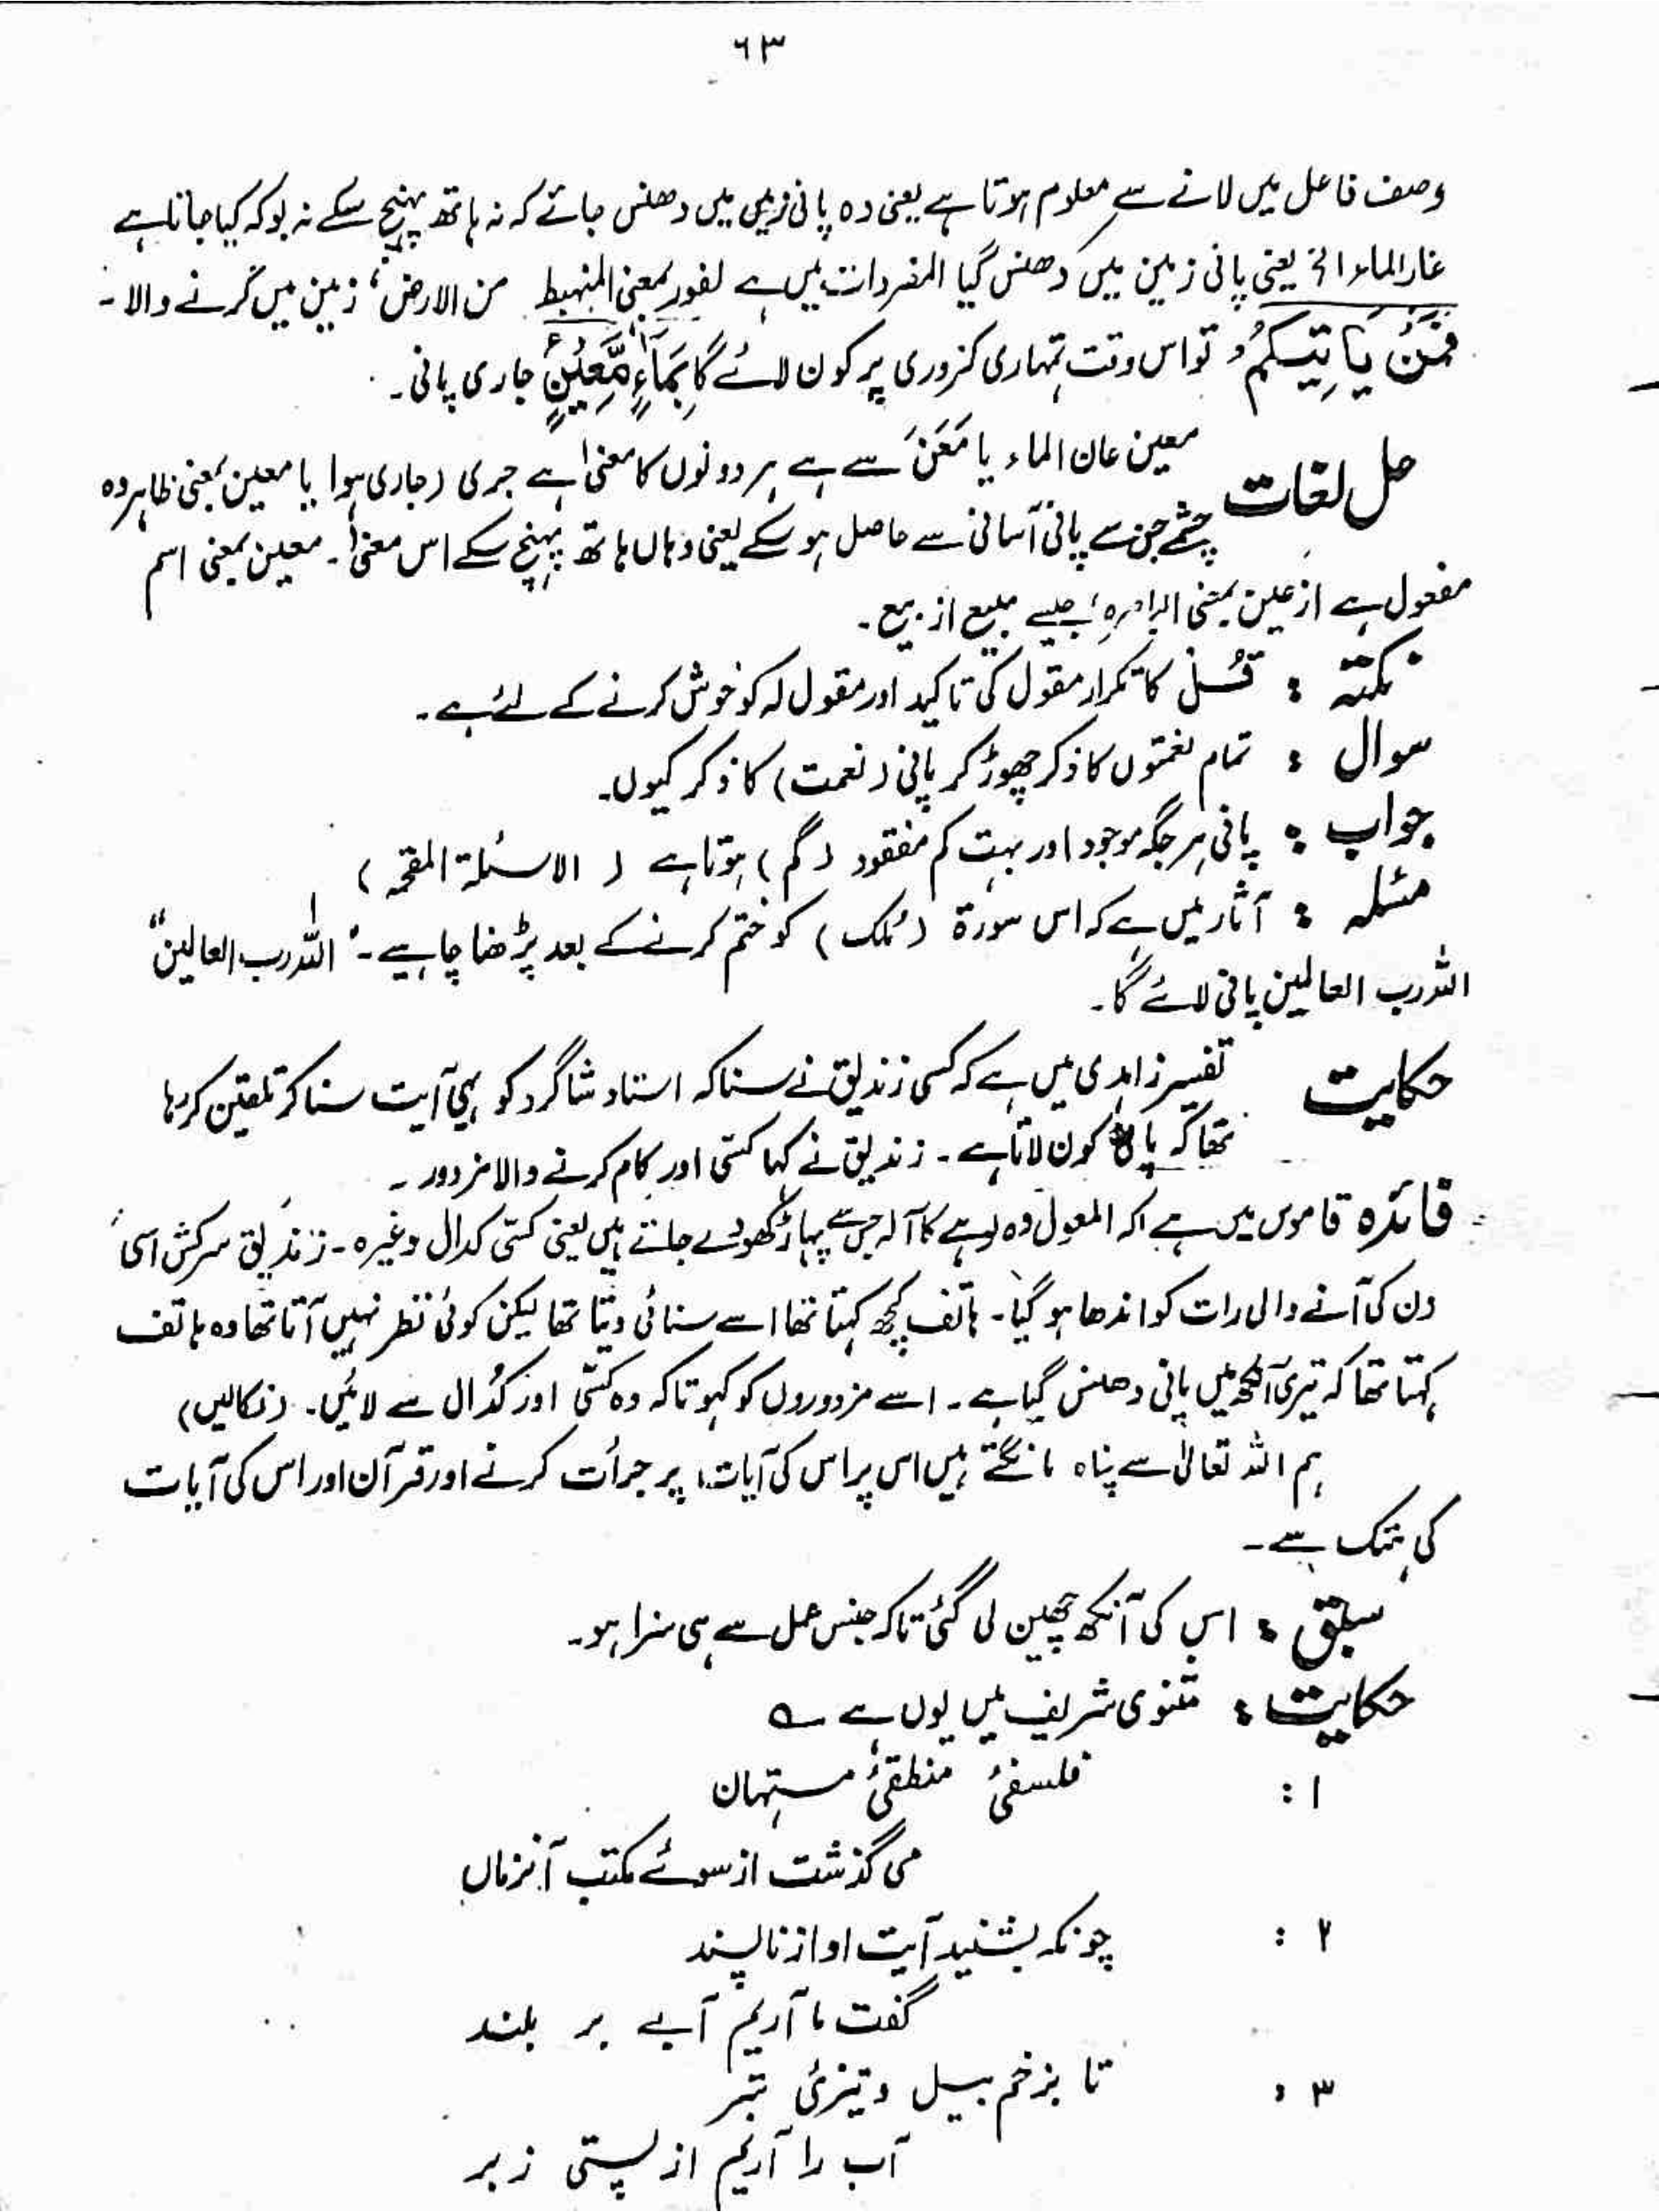 ٦٣
وصف فاعل میں لانے سے معلوم ہوتا ہے یعنی وہ پانی زمین میں دھنس جائے کہ نہ ہاتھ پہنچ سکے نہ بوکہ کیا جاتا ہے
غار الماء الخ یعنی پانی زمین میں دھنس گیا المفردات میں ہے لغور بمعنی المنہبط من الارض، زمین میں گرنے والا ۔
فَمَنْ یَّاْتِیْکُمْ تو اس وقت تمہاری کمزوری پر کون لائے گا بِمَآءٍ مَّعِیْنٍ جاری پانی ۔
حل لغات معین عان الماء یا مَعَنَ سے ہے ہر دونوں کا معنیٰ ہے جری (جاری ہوا یا معین بمعنی ظاہر وہ
چشمے جن سے پانی آسانی سے حاصل ہو سکے یعنی وہاں ہاتھ پہنچ سکے اس معنیٰ ۔ معین بمعنی اسم
مفعول ہے از عین بمعنی الباصرہ، جیسے مبیع از بیع ۔
نکتہ : قُل کا تکرار مقول کی تاکید اور مقول لہ کو خوش کرنے کے لئے ہے ۔
سوال : تمام نعمتوں کا ذکر چھوڑ کر پانی (نعمت) کا ذکر کیوں ۔
جواب : پانی ہر جگہ موجود اور بہت کم مفقود (گم) ہوتا ہے ( الاسئلۃ المقحمہ )
مسئلہ : آثار میں ہے کہ اس سورۃ (ملک) کو ختم کرنے کے بعد پڑھنا چاہیے ۔ "اللہ رب العالمین"
اللہ رب العالمین پانی لائے گا ۔
حکایت تفسیر زاہدی میں ہے کہ کسی زندیق نے سنا کہ استاد شاگرد کو یہی آیت سنا کر تلقین کر رہا
تھا کہ پانی کون لاتا ہے ۔ زندیق نے کہا کسّی اور کام کرنے والا مزدور ۔
فائدہ قاموس میں ہے کہ المعول وہ لوہے کا آلہ جس سے پہاڑ کھودے جاتے ہیں یعنی کسّی کدال وغیرہ ۔ زندیق سرکش اسی
دن کی آنے والی رات کو اندھا ہو گیا ۔ ہاتف کچھ کہتا تھا اسے سنائی دیتا تھا لیکن کوئی نظر نہیں آتا تھا وہ ہاتف
کہتا تھا کہ تیری آنکھ میں پانی دھنس گیا ہے ۔ اسے مزدوروں کو کہو تاکہ وہ کسّی اور کدال سے لائیں ۔ (نکالیں)
ہم اللہ تعالیٰ سے پناہ مانگتے ہیں اس پر اس کی آیات پر جرأت کرنے اور قرآن اور اس کی آیات
کی ہتک سے ۔
سبق : اس کی آنکھ چھین لی گئی تاکہ جنس عمل سے ہی سزا ہو ۔
حکایت : مثنوی شریف میں یوں ہے ؎
١ : فلسفیٔ منطقیٔ مستہان
می گذشت از سوئے مکتب آنزماں
٢ : چونکہ بشنید آیت او از ناپسند
گفت ما آریم آبے بر بلند
٣ : تا بزخم بیل و تیزیٔ تبر
آب را آریم از پستی زبر